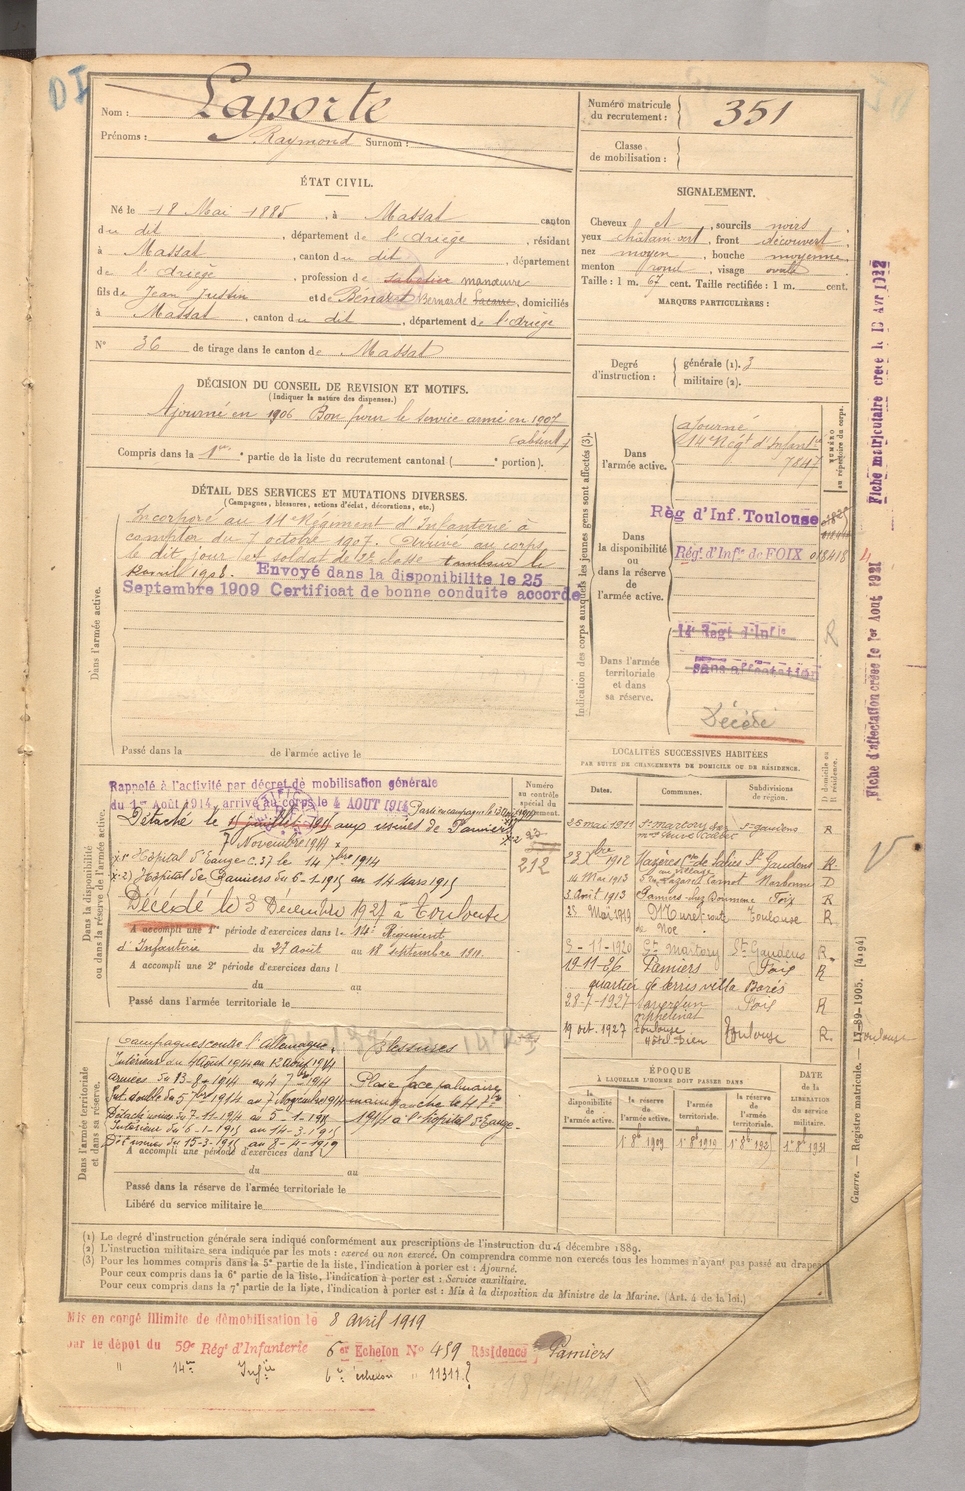 DI
Nom : Laporte
Prénoms : Raymond Surnom :
Numéro matricule du recrutement : 351
Classe de mobilisation :
ÉTAT CIVIL.
Né le 18 Mai 1885, à Massat canton
du dit, département de l'Ariège, résidant
à Massat, canton du dit, département
de l'Ariège, profession de sabotier manœuvre
fils de Jean Justin et de Bénazet Bernarde, domiciliés
à Massat, canton du dit, département de l'Ariège
N° 36 de tirage dans le canton de Massat
SIGNALEMENT.
Cheveux et, sourcils noirs,
yeux châtain vert, front découvert,
nez moyen, bouche moyenne,
menton rond, visage ovale
Taille : 1 m. 67 cent. Taille rectifiée : 1 m. cent.
MARQUES PARTICULIÈRES :
Degré d'instruction : générale (1). 3
militaire (2).
DÉCISION DU CONSEIL DE REVISION ET MOTIFS.
(Indiquer la nature des dispenses.)
Ajourné en 1906 Bon pour le service armé en 1907
(absent)
Compris dans la 1re partie de la liste du recrutement cantonal ( portion).
DÉTAIL DES SERVICES ET MUTATIONS DIVERSES.
(Campagnes, blessures, actions d'éclat, décorations, etc.)
Dans l'armée active.
Incorporé au 14e Régiment d'Infanterie à
compter du 7 octobre 1907. Arrivé au corps
le dit jour soldat de 2e classe tambour le
1908. Envoyé dans la disponibilite le 25
Septembre 1909 Certificat de bonne conduite accordé
Passé dans la de l'armée active le
Indication des corps auxquels les jeunes gens sont affectés (3).
NUMÉRO au répertoire du corps.
Dans l'armée active.
ajourné
14e Régt d'Infantie
7847
Dans la disponibilité ou dans la réserve de l'armée active.
Règ d'Inf. Toulouse
Rég. d'Infie de FOIX 018418
Dans l'armée territoriale et dans sa réserve.
14e Regt d'Infie R
sans affectation
Décédé
Fiche matriculaire creée le 13 Avr 1922
Fiche d'affectation creée le 1er Aout 1921
Dans la disponibilité ou dans la réserve de l'armée active.
Numéro au contrôle spécial du
212
Rappelé à l'activité par décret de mobilisation générale
du 1er Août 1914, arrivé au corps le 4 AOUT 1914
Détaché le aux usines de Pamiers
7 Novembre 1914
Hôpital C. 37 le 14 7bre 1914
Hôpital de Pamiers du 6-1-1915 au 14 Mars 1915
Décédé le 3 Décembre 1927 à Toulouse
A accompli une 1e période d'exercices dans le 14e Régiment
d'Infanterie du 27 Août au 18 septembre 1911.
A accompli une 2e période d'exercices dans l
du au
Passé dans l'armée territoriale le
LOCALITÉS SUCCESSIVES HABITÉES
PAR SUITE DE CHANGEMENTS DE DOMICILE OU DE RÉSIDENCE.
Dates. Communes. Subdivisions de région. D domicile ou R résidence.
25 mai 1911 St martory St gaudens R
1912 Mazères de Salies St Gaudens R
14 Mai 1913 Carnot Narbonne D
3 août 1913 Pamiers Foix R
23 Mai 1919 Muret route de Noé Toulouse R
3-11-1920 St Martory St Gaudens R
19-11-26 Pamiers Foix R
quartier de villa
28-7-1927 orphelinat Foix R
19 oct. 1927 Toulouse Hôtel-Dieu Toulouse R.
Dans l'armée territoriale et dans sa réserve.
Campagnes contre l'Allemagne. Blessures
Intérieur du 4 Août 1914 au 12 Août 1914
armées du 13-8-1914 au 4 7bre 1914
Int. double du 5 7bre 1914 au 7 Novembre 1914
Détaché usines du 7-11-1914 au 5-1-1915
Intérieur du 6-1-1915 au 14-3-1915
Dét usines du 15-3-1915 au 8-4-1919
Plaie face palmaire
main gauche le 4 7bre
1914 à l'hôpital
A accompli une période d'exercices dans l
du au
Passé dans la réserve de l'armée territoriale le
Libéré du service militaire le
ÉPOQUE
À LAQUELLE L'HOMME DOIT PASSER DANS
DATE de la LIBÉRATION du service militaire.
la disponibilité de l'armée active. la réserve de l'armée active. l'armée territoriale. la réserve de l'armée territoriale.
1er 8bre 1909 1er 8bre 1919 1er 8bre 1925 1er 8bre 1931
Guerre. — Registre matricule. — 17-89-1905. [4194]
(1) Le degré d'instruction générale sera indiqué conformément aux prescriptions de l'instruction du 4 décembre 1889.
(2) L'instruction militaire sera indiquée par les mots : exercé ou non exercé. On comprendra comme non exercés tous les hommes n'ayant pas passé au drapeau
(3) Pour les hommes compris dans la 5e partie de la liste, l'indication à porter est : Ajourné.
Pour ceux compris dans la 6e partie de la liste, l'indication à porter est : Service auxiliaire.
Pour ceux compris dans la 7e partie de la liste, l'indication à porter est : Mis à la disposition du Ministre de la Marine. (Art. 4 de la loi.)
Mis en congé illimité de démobilisation le 8 avril 1919
par le dépôt du 59e Rég. d'Infanterie 6er Echelon No 459 Résidence Pamiers
" 14me Infie 6e échelon " 11311